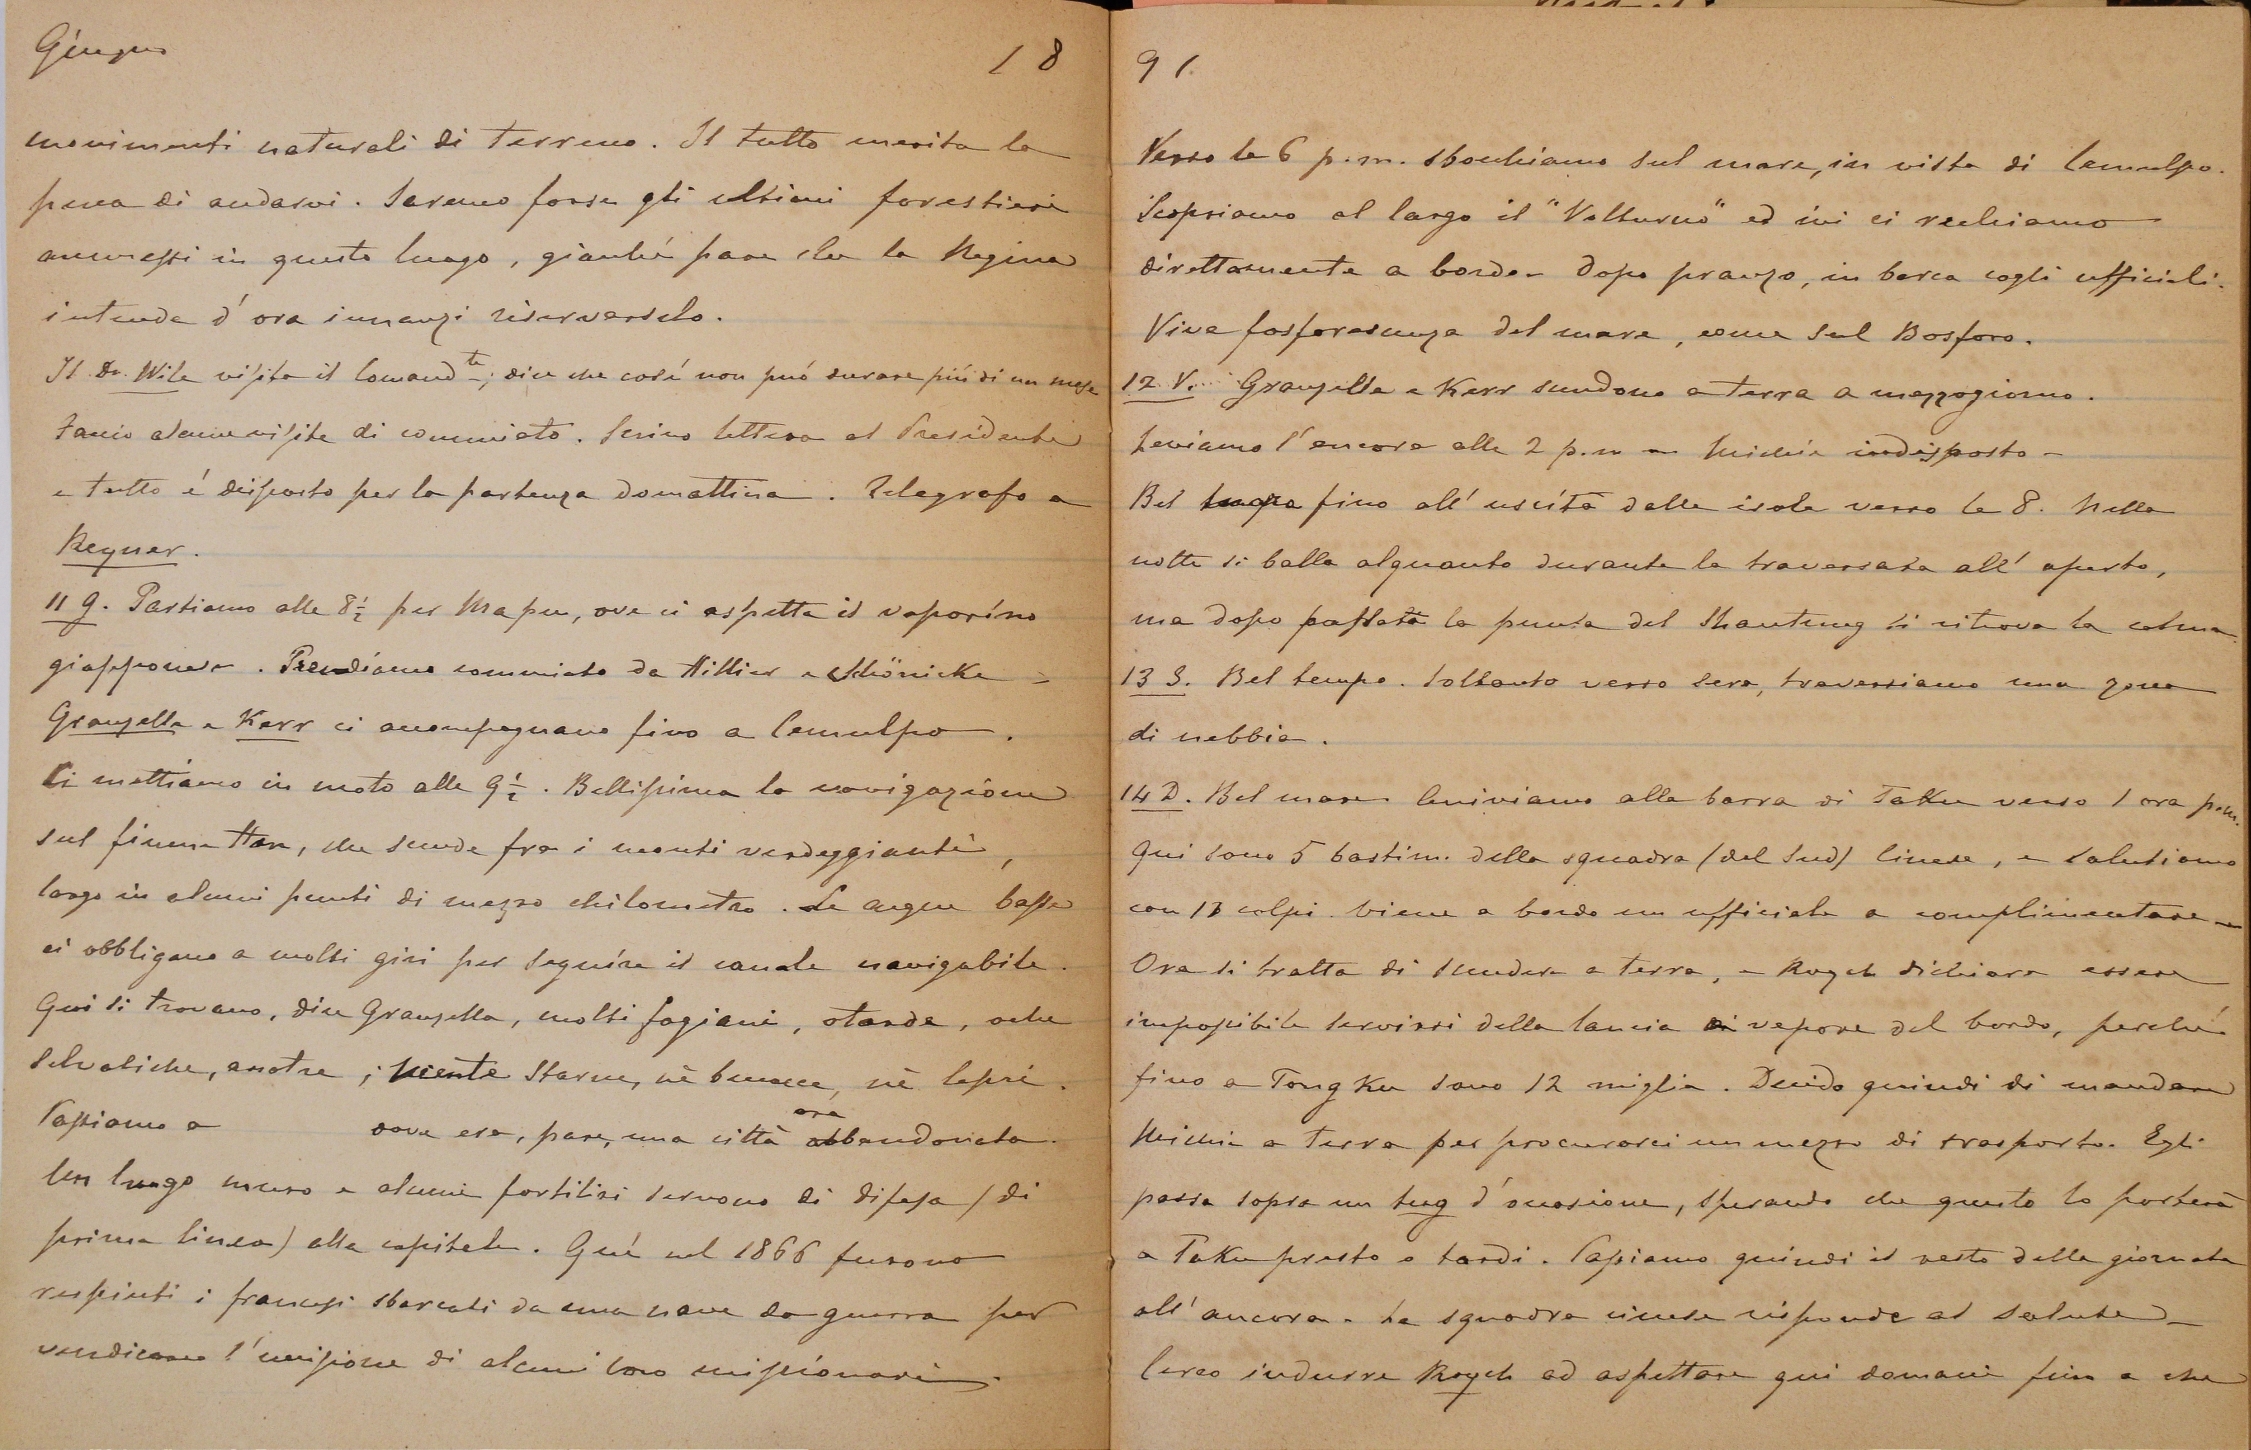 Giugno 18
movimenti naturali di terreno. Il tutto merita la
pena di andarvi. Saremo forse gli ultimi forestieri
ammessi in questo luogo, giacché pare che la Regina
intenda d'ora innanzi riserverselo.
Il Dr. Wile visita il Comand.te; dice che così non può durare più di un mese
Faccio alcune visite di commiato. Scrivo lettera al Presidente
e tutto é disposto per la partenza domattina. Telegrafo a
Reyner.
11 G. Partiamo alle 8½ per Mapu, ove ci aspetta il vaporino
giapponese. Prendiamo commiato da Hillier e Schönicke =
Granzella e Kerr ci accompagnano fino a Cemulpo.
Ci mettiamo in moto alle 9½. Bellissima la navigazione
sul fiume Han, che scende fra i monti verdeggianti,
largo in alcuni punti di mezzo chilometro. Le acque basse
ci obbligano a molti giri per seguire il canale navigabile.
Qui si trovano, dice Granzella, molti fagiani, otarde, oche
selvatiche, anatre; niente starne, nè beccacce, nè lepri.
Passiamo a dove era, pare, una città ora abbandonata.
Un lungo muro e alcuni fortilizi servono di difesa (di
prima linea) alla capitale. Qui nel 1866 furono
respinti i francesi sbarcati da una nave da guerra per
vendicare l'uccisione di alcuni loro missionari.
91
Verso le 6 p.m. sbocchiamo sul mare, in vista di Cemulpo.
Scopriamo al largo il "Volturno" ed ivi ci rechiamo
direttamente a bordo. Dopo pranzo, in barca cogli ufficiali.
Viva fosforescenza del mare, come sul Bosforo.
12 V. Granzella e Kerr scendono a terra a mezzogiorno.
Leviamo l'ancora alle 2 p.m — Michie indisposto —
Bel tempo fino all'uscita dalle isole verso le 8. Nella
notte si balla alquanto durante la traversata all'aperto,
ma dopo passata la punta del Shantung si ritrova la calma.
13 S. Bel tempo. Soltanto verso sera, traversiamo una zona
di nebbia.
14 D. Bel mare. Arriviamo alla barra di Taku verso 1 ora p.m.
Qui sono 5 bastim. della squadra (del Sud) Cinese, e salutiamo
con 13 colpi. Viene a bordo un ufficiale a complimentare —
Ora si tratta di scendere a terra, e Roych dichiara essere
impossibile servirsi della lancia a vapore del bordo, perché
fino a Tong Ku sono 12 miglia. Decido quindi di mandare
Michie a terra per procurarci un mezzo di trasporto. Egli
passa sopra un tug d'occasione, sperando che questo lo porterà
a Taku presto o tardi. Passiamo quindi il resto della giornata
all'ancora. La squadra cinese risponde al saluto —
Cerco indurre Roych ad aspettare qui domani fino a che